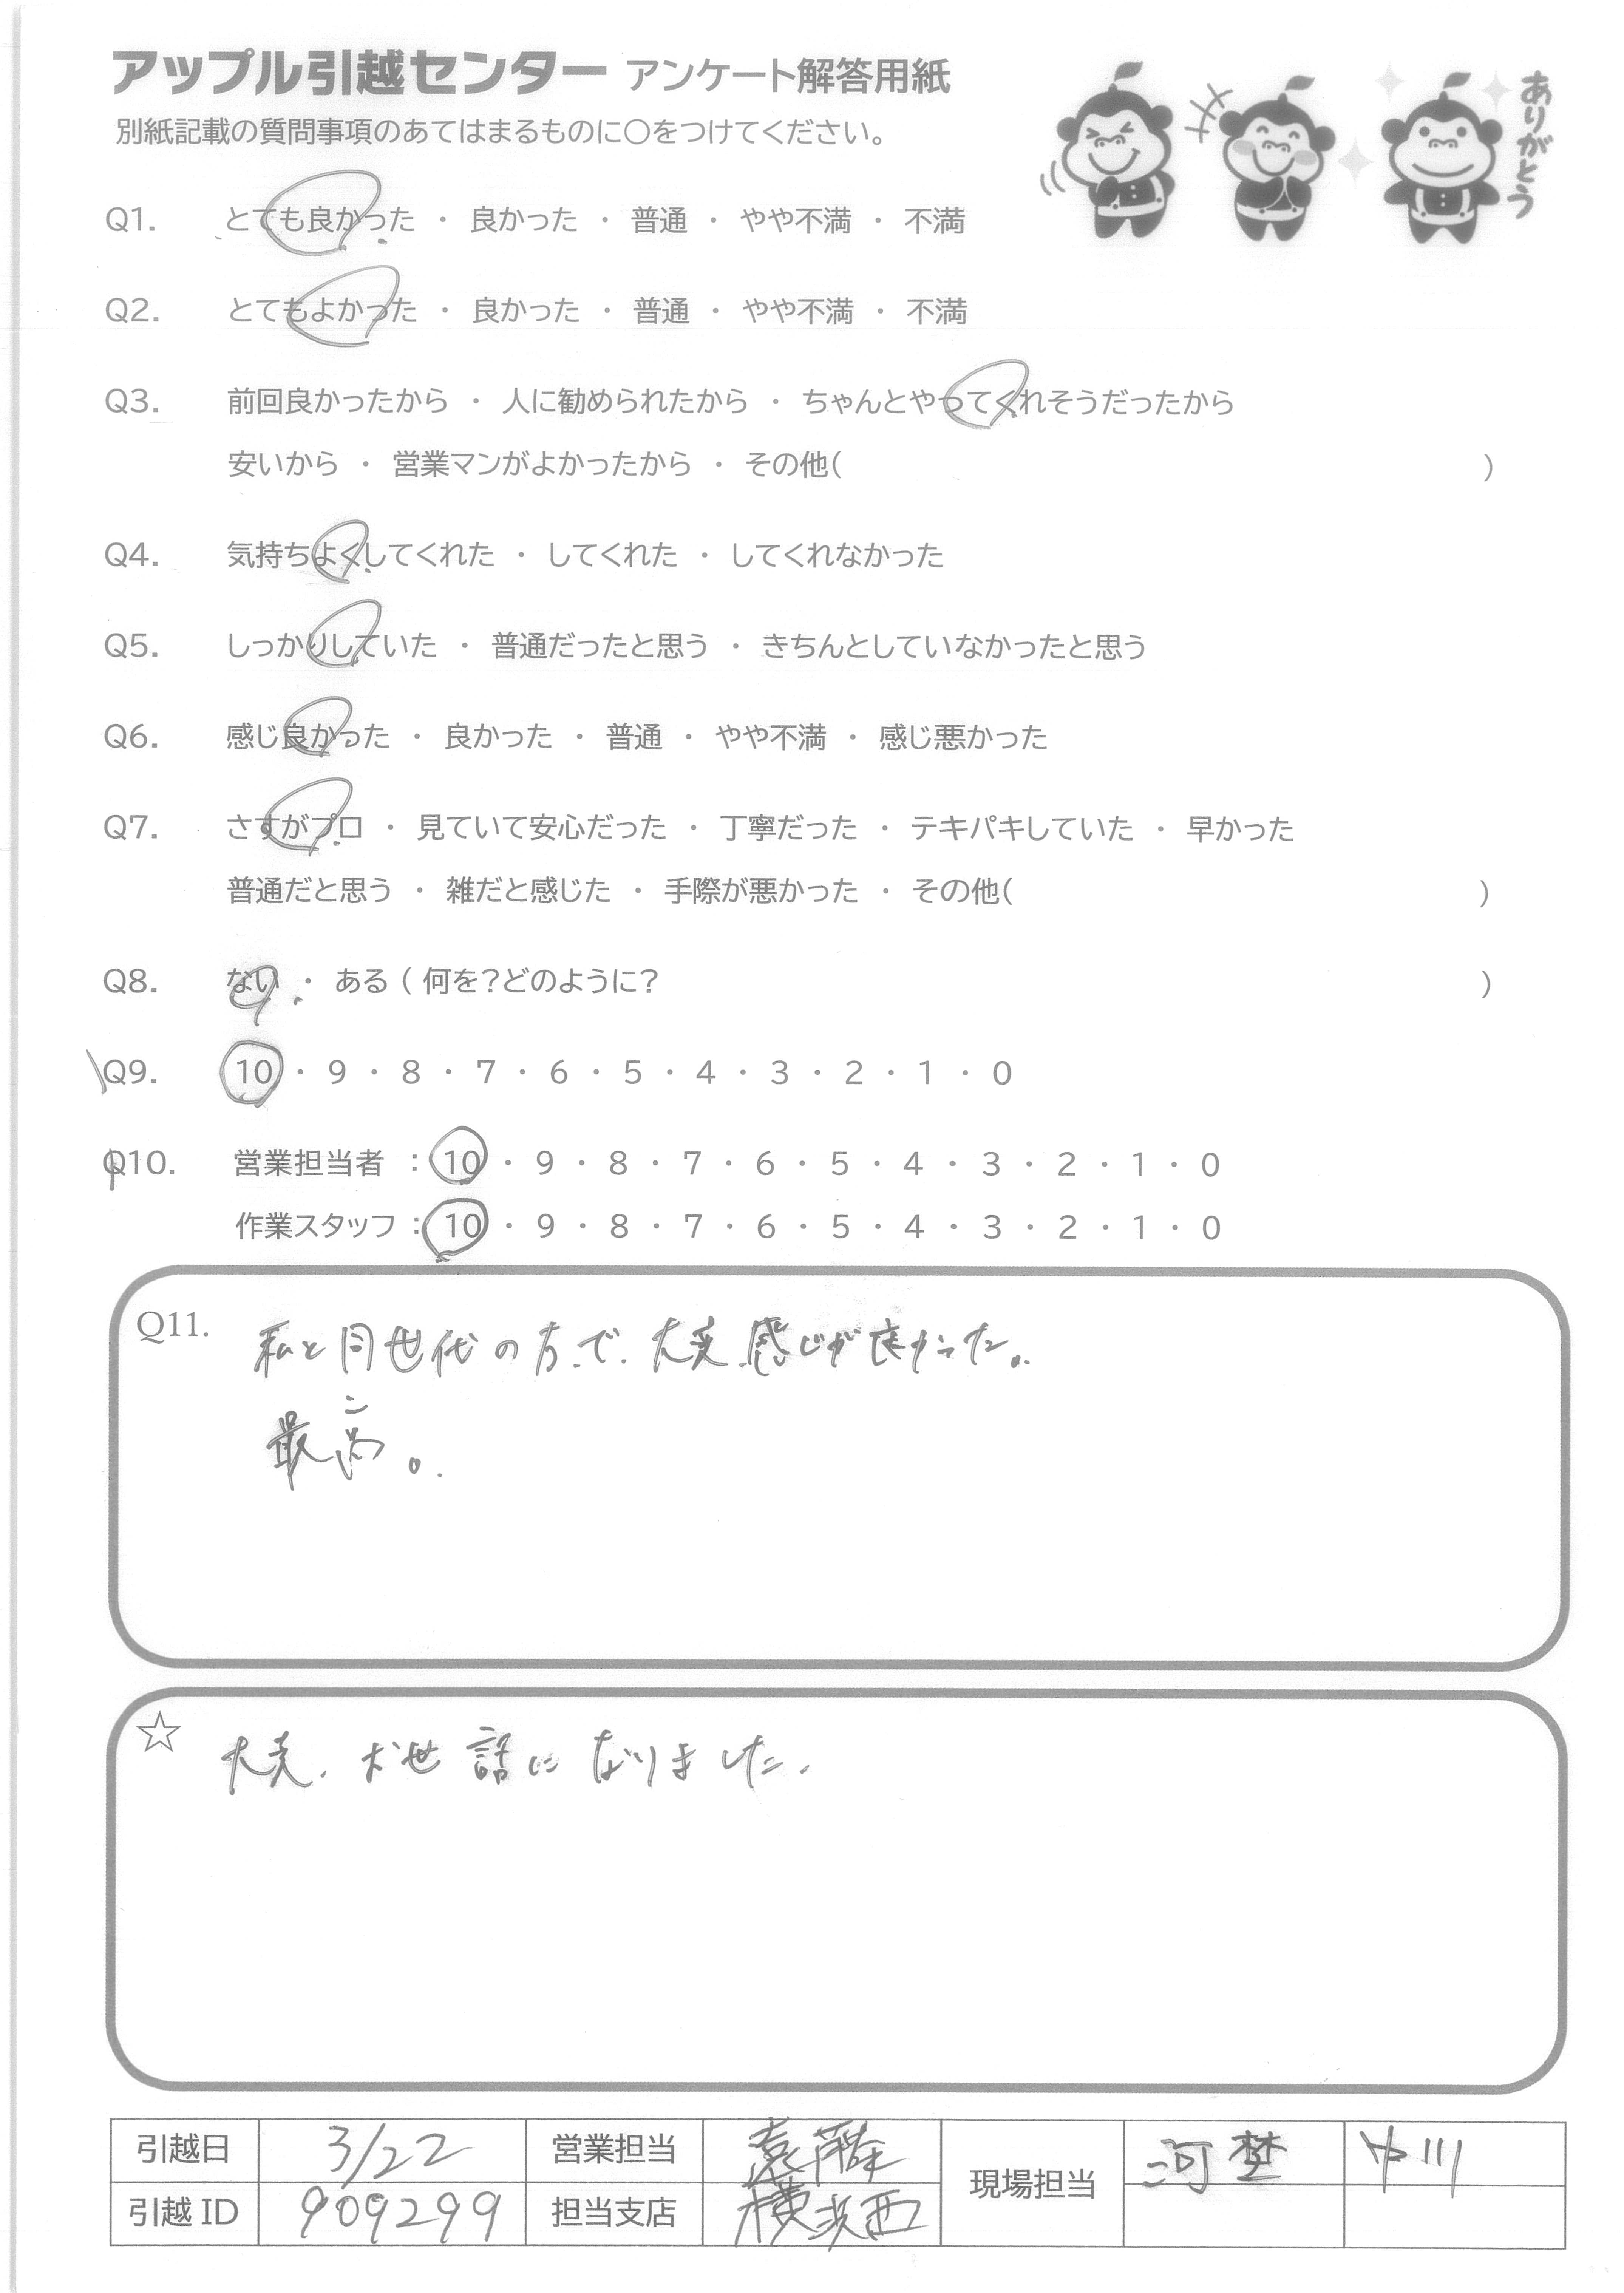 アップル引越センター アンケート解答用紙
別紙記載の質問事項のあてはまるものに○をつけてください。
ありがとう
Q1. とても良かった ・ 良かった ・ 普通 ・ やや不満 ・ 不満
Q2. とてもよかった ・ 良かった ・ 普通 ・ やや不満 ・ 不満
Q3. 前回良かったから ・ 人に勧められたから ・ ちゃんとやってくれそうだったから
安いから ・ 営業マンがよかったから ・ その他( )
Q4. 気持ちよくしてくれた ・ してくれた ・ してくれなかった
Q5. しっかりしていた ・ 普通だったと思う ・ きちんとしていなかったと思う
Q6. 感じ良かった ・ 良かった ・ 普通 ・ やや不満 ・ 感じ悪かった
Q7. さすがプロ ・ 見ていて安心だった ・ 丁寧だった ・ テキパキしていた ・ 早かった
普通だと思う ・ 雑だと感じた ・ 手際が悪かった ・ その他( )
Q8. ない ・ ある ( 何を?どのように? )
Q9. 10 ・ 9 ・ 8 ・ 7 ・ 6 ・ 5 ・ 4 ・ 3 ・ 2 ・ 1 ・ 0
Q10. 営業担当者 : 10 ・ 9 ・ 8 ・ 7 ・ 6 ・ 5 ・ 4 ・ 3 ・ 2 ・ 1 ・ 0
作業スタッフ : 10 ・ 9 ・ 8 ・ 7 ・ 6 ・ 5 ・ 4 ・ 3 ・ 2 ・ 1 ・ 0
Q11. 私と同世代の方で、大変感じが良かった。
最高。
☆ 大変、お世話になりました。
引越日 3/22 営業担当 遠藤 現場担当 河埜 中川
引越ID 909299 担当支店 横浜西